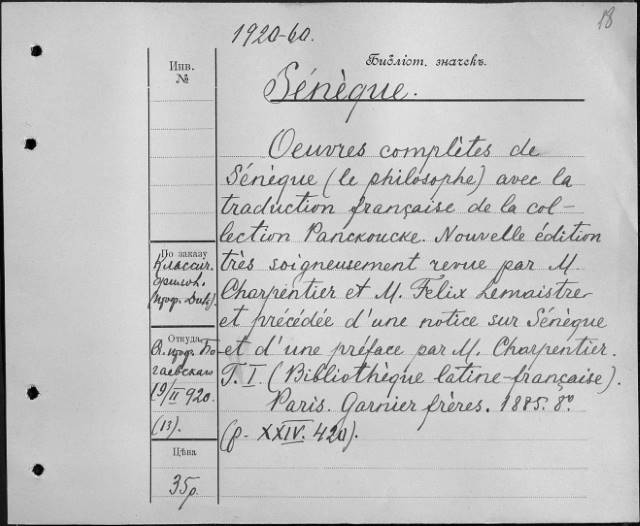 18
1920-60.
Библіот. значекъ.
Sénèque.
Oeuvres complètes de
Sénèque (le philosophe) avec la
traduction française de la col-
lection Panckoucke. Nouvelle édition
très soigneusement revue par M.
Charpentier et M. Felix Lemaistre
et précédée d'une notice sur Sénèque
et d'une préface par M. Charpentier.
T. I. (Bibliothèque latine-française).
Paris. Garnier frères. 1885. 8º
(p. XXIV. 420).
Инв.
№
По заказу
Классич.
филол.
(проф.
Откуда
проф. Бо-
гаевскаго
19/II 920.
(13).
Цѣна
35р.